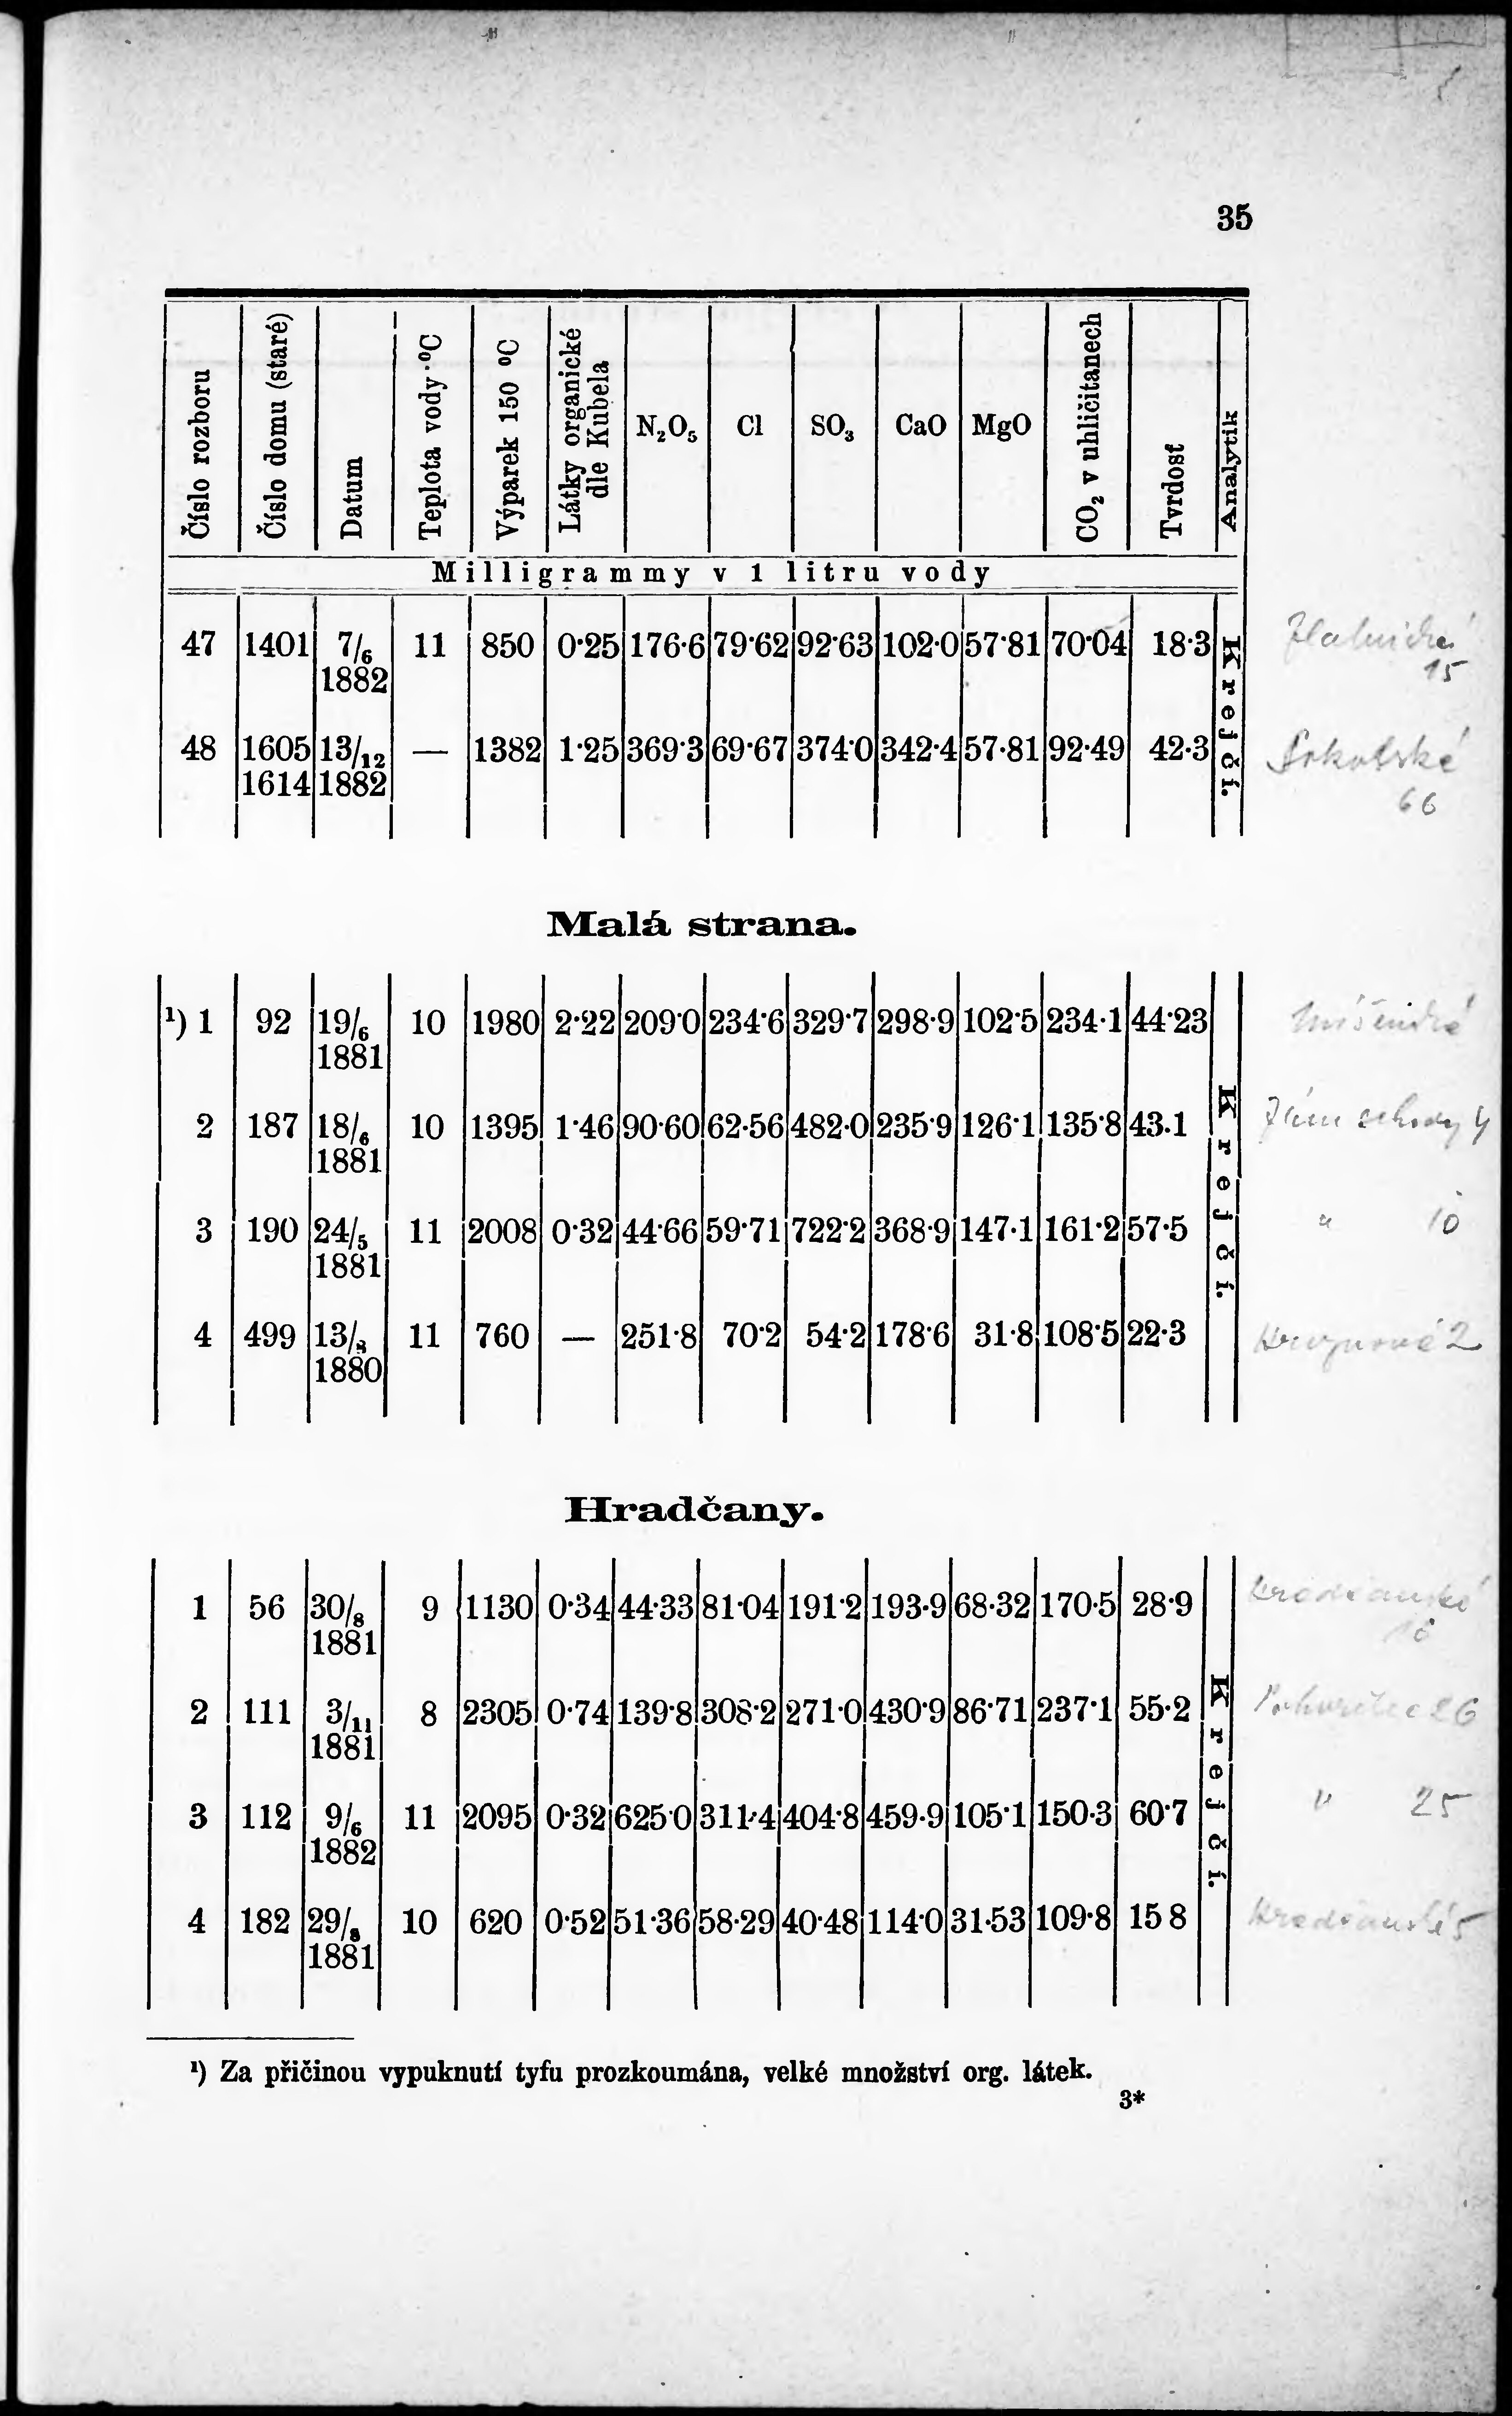 35
Číslo rozboru | Číslo domu (staré) | Datum | Teplota vody °C | Výparek 150 °C | Látky organické dle Kubela | N₂O₅ | Cl | SO₃ | CaO | MgO | CO₂ v uhličitanech | Tvrdost | Analytik
Milligrammy v 1 litru vody
47 1401 7/₆ 11 850 0·25 176·6 79·62 92·63 102·0 57·81 70·04 18·3 Krejčí.
1882
15
48 1605 13/₁₂ — 1382 1·25 369·3 69·67 374·0 342·4 57·81 92·49 42·3 Sokolská
1614 1882
66
Malá strana.
¹) 1 92 19/₆ 10 1980 2·22 209·0 234·6 329·7 298·9 102·5 234·1 44·23 Míšeňská
1881
2 187 18/₆ 10 1395 1·46 90·60 62·56 482·0 235·9 126·1 135·8 43.1 Krejčí. Zám schody 4
1881
3 190 24/₅ 11 2008 0·32 44·66 59·71 722·2 368·9 147·1 161·2 57·5 " 10
1881
4 499 13/₈ 11 760 — 251·8 70·2 54·2 178·6 31·8 108·5 22·3 2
1880
Hradčany.
1 56 30/₈ 9 1130 0·34 44·33 81·04 191·2 193·9 68·32 170·5 28·9
1881
2 111 3/₁₁ 8 2305 0·74 139·8 308·2 271·0 430·9 86·71 237·1 55·2 Krejčí. Pohořelec 26
1881
3 112 9/₆ 11 2095 0·32 625 0 311·4 404·8 459·9 105·1 150·3 60·7 " 25
1882
4 182 29/₈ 10 620 0·52 51·36 58·29 40·48 114·0 31·53 109·8 15 8 5
1881
¹) Za přičinou vypuknutí tyfu prozkoumána, velké množství org. látek.
3*